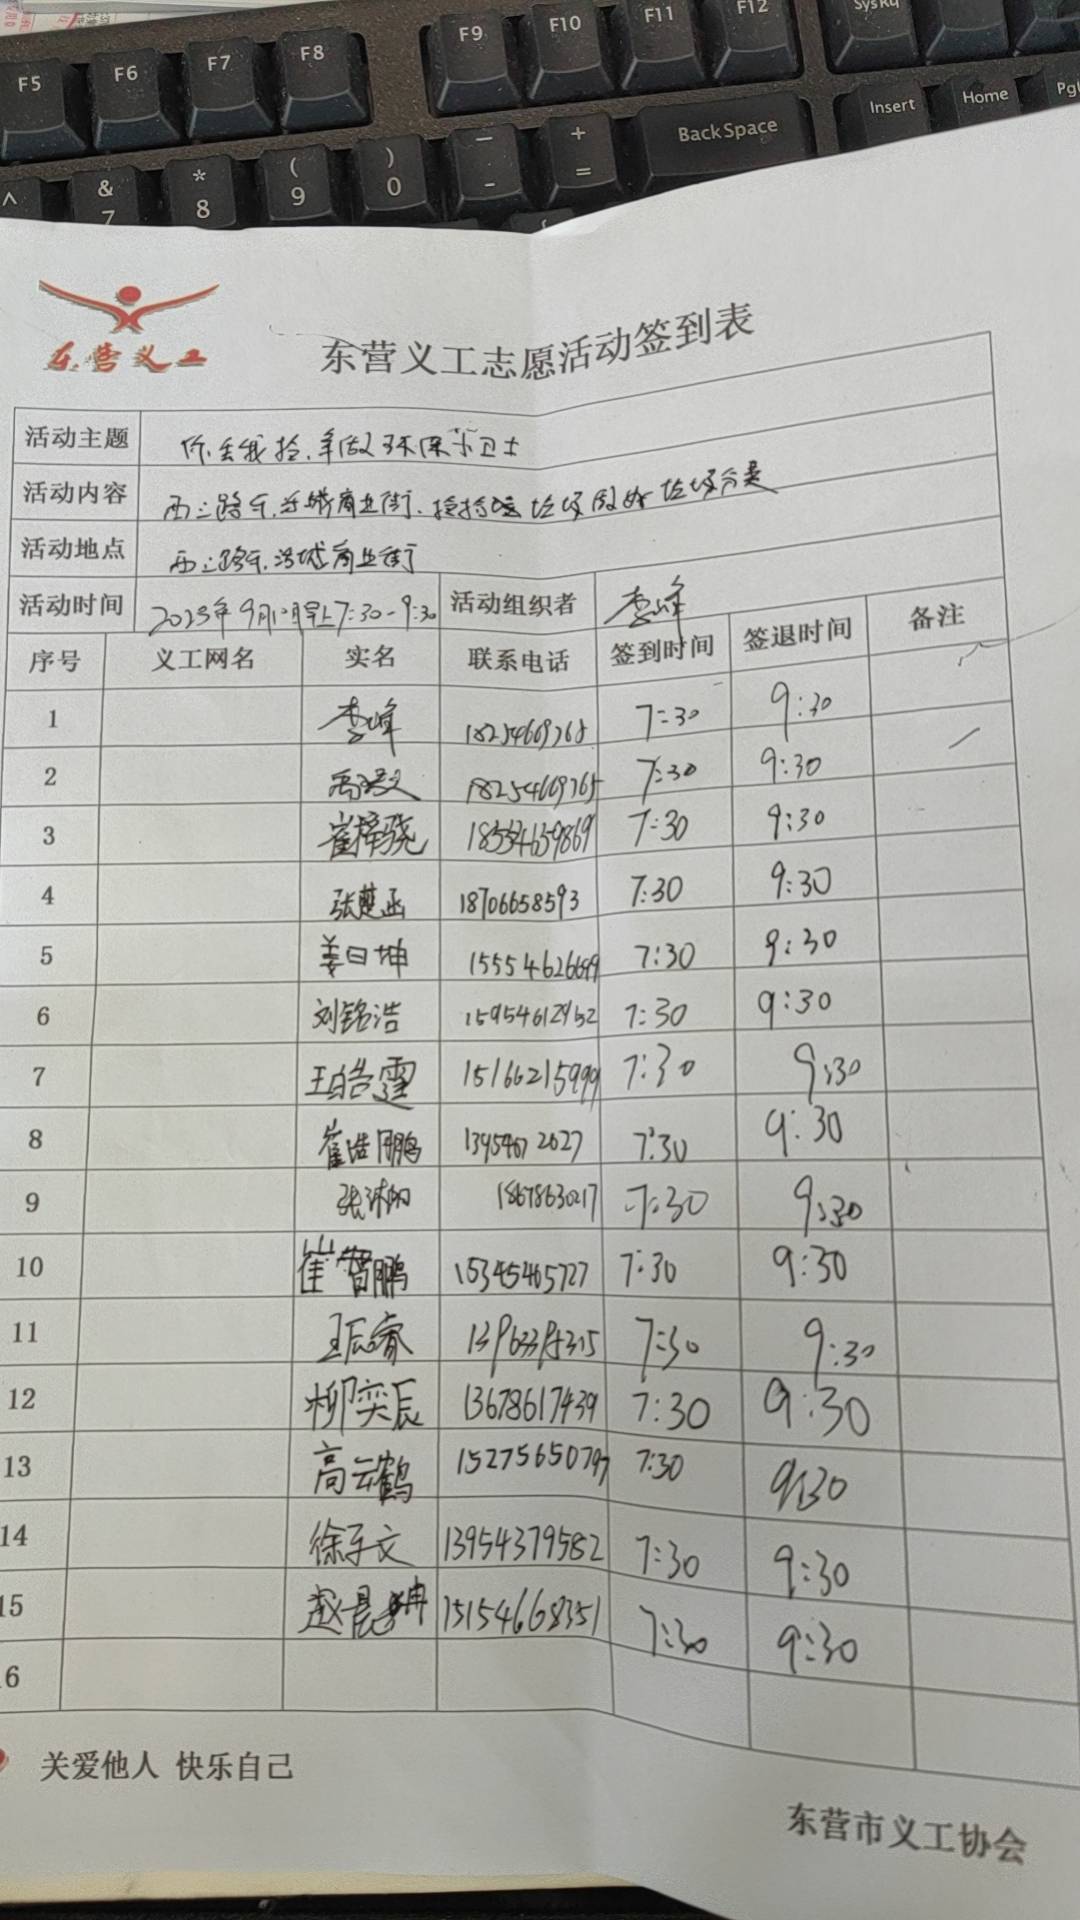 F5 F6 F7 F8 F9 F10 F11 F12 SysRq
Insert Home PgU
^ & 7 * 8 ( 9 ) 0 - + = BackSpace
东营义工
东营义工志愿活动签到表
活动主题 你丢我捡,争做环保小卫士
活动内容 西二路东, 商业街, 垃圾 垃圾分类
活动地点 西二路东, 商业街
活动时间 2023年9月12日早上7:30-9:30 活动组织者 李峰
序号 义工网名 实名 联系电话 签到时间 签退时间 备注
1 李峰 18254669768 7:30 9:30
2 18254669765 7:30 9:30
3 崔梓骁 7:30 9:30
4 张楚函 18706658593 7:30 9:30
5 姜日坤 15554626699 7:30 9:30
6 刘铭浩 15954612952 7:30 9:30
7 王皓霆 15166215999 7:30 9:30
8 崔浩鹏 13954672627 7:30 9:30
9 18678630217 7:30 9:30
10 崔智鹏 15345465727 7:30 9:30
11 王辰睿 7:30 9:30
12 柳奕辰 13678617439 7:30 9:30
13 高云鹤 15275650797 7:30 9:30
14 徐子文 13954379582 7:30 9:30
15 赵晨 15154668351 7:30 9:30
16
关爱他人 快乐自己
东营市义工协会